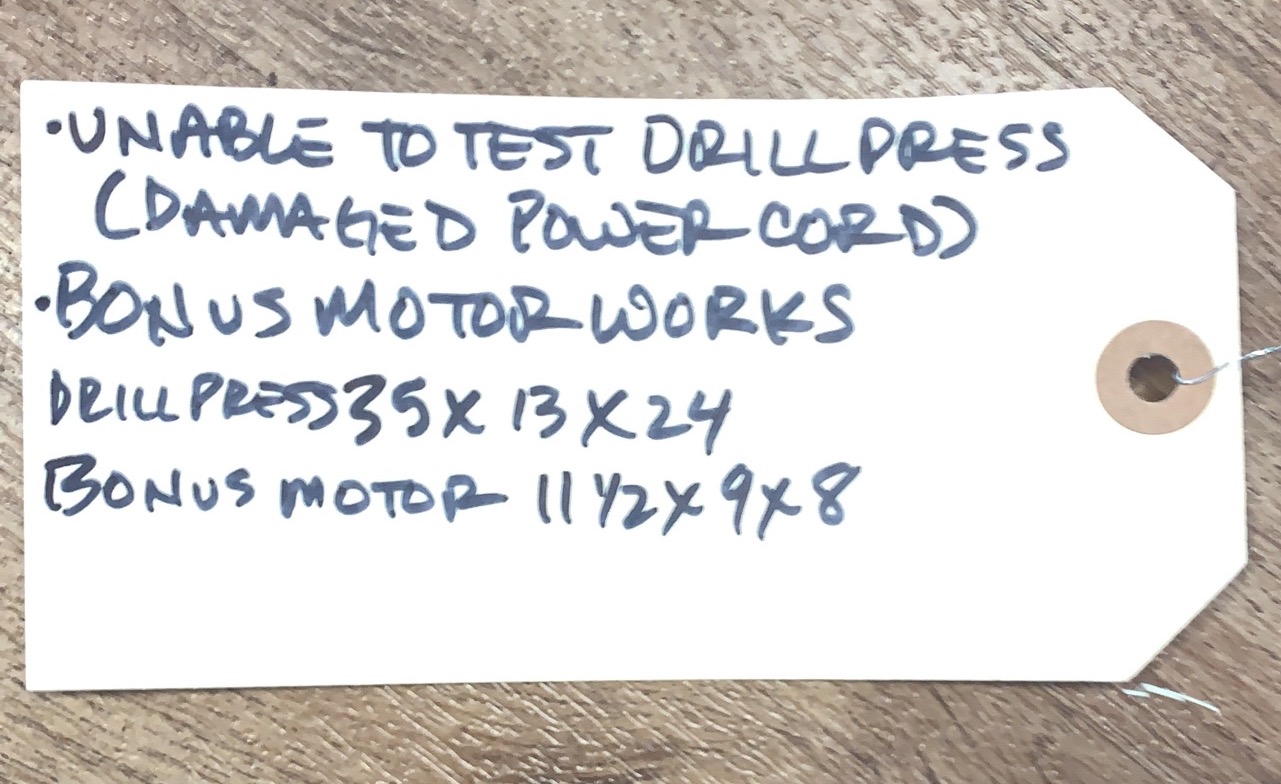 ·UNABLE TO TEST DRILL PRESS
(DAMAGED POWER CORD)
·BONUS MOTOR WORKS
DRILL PRESS 35 X 13 X 24
BONUS MOTOR 11 1/2 X 9 X 8